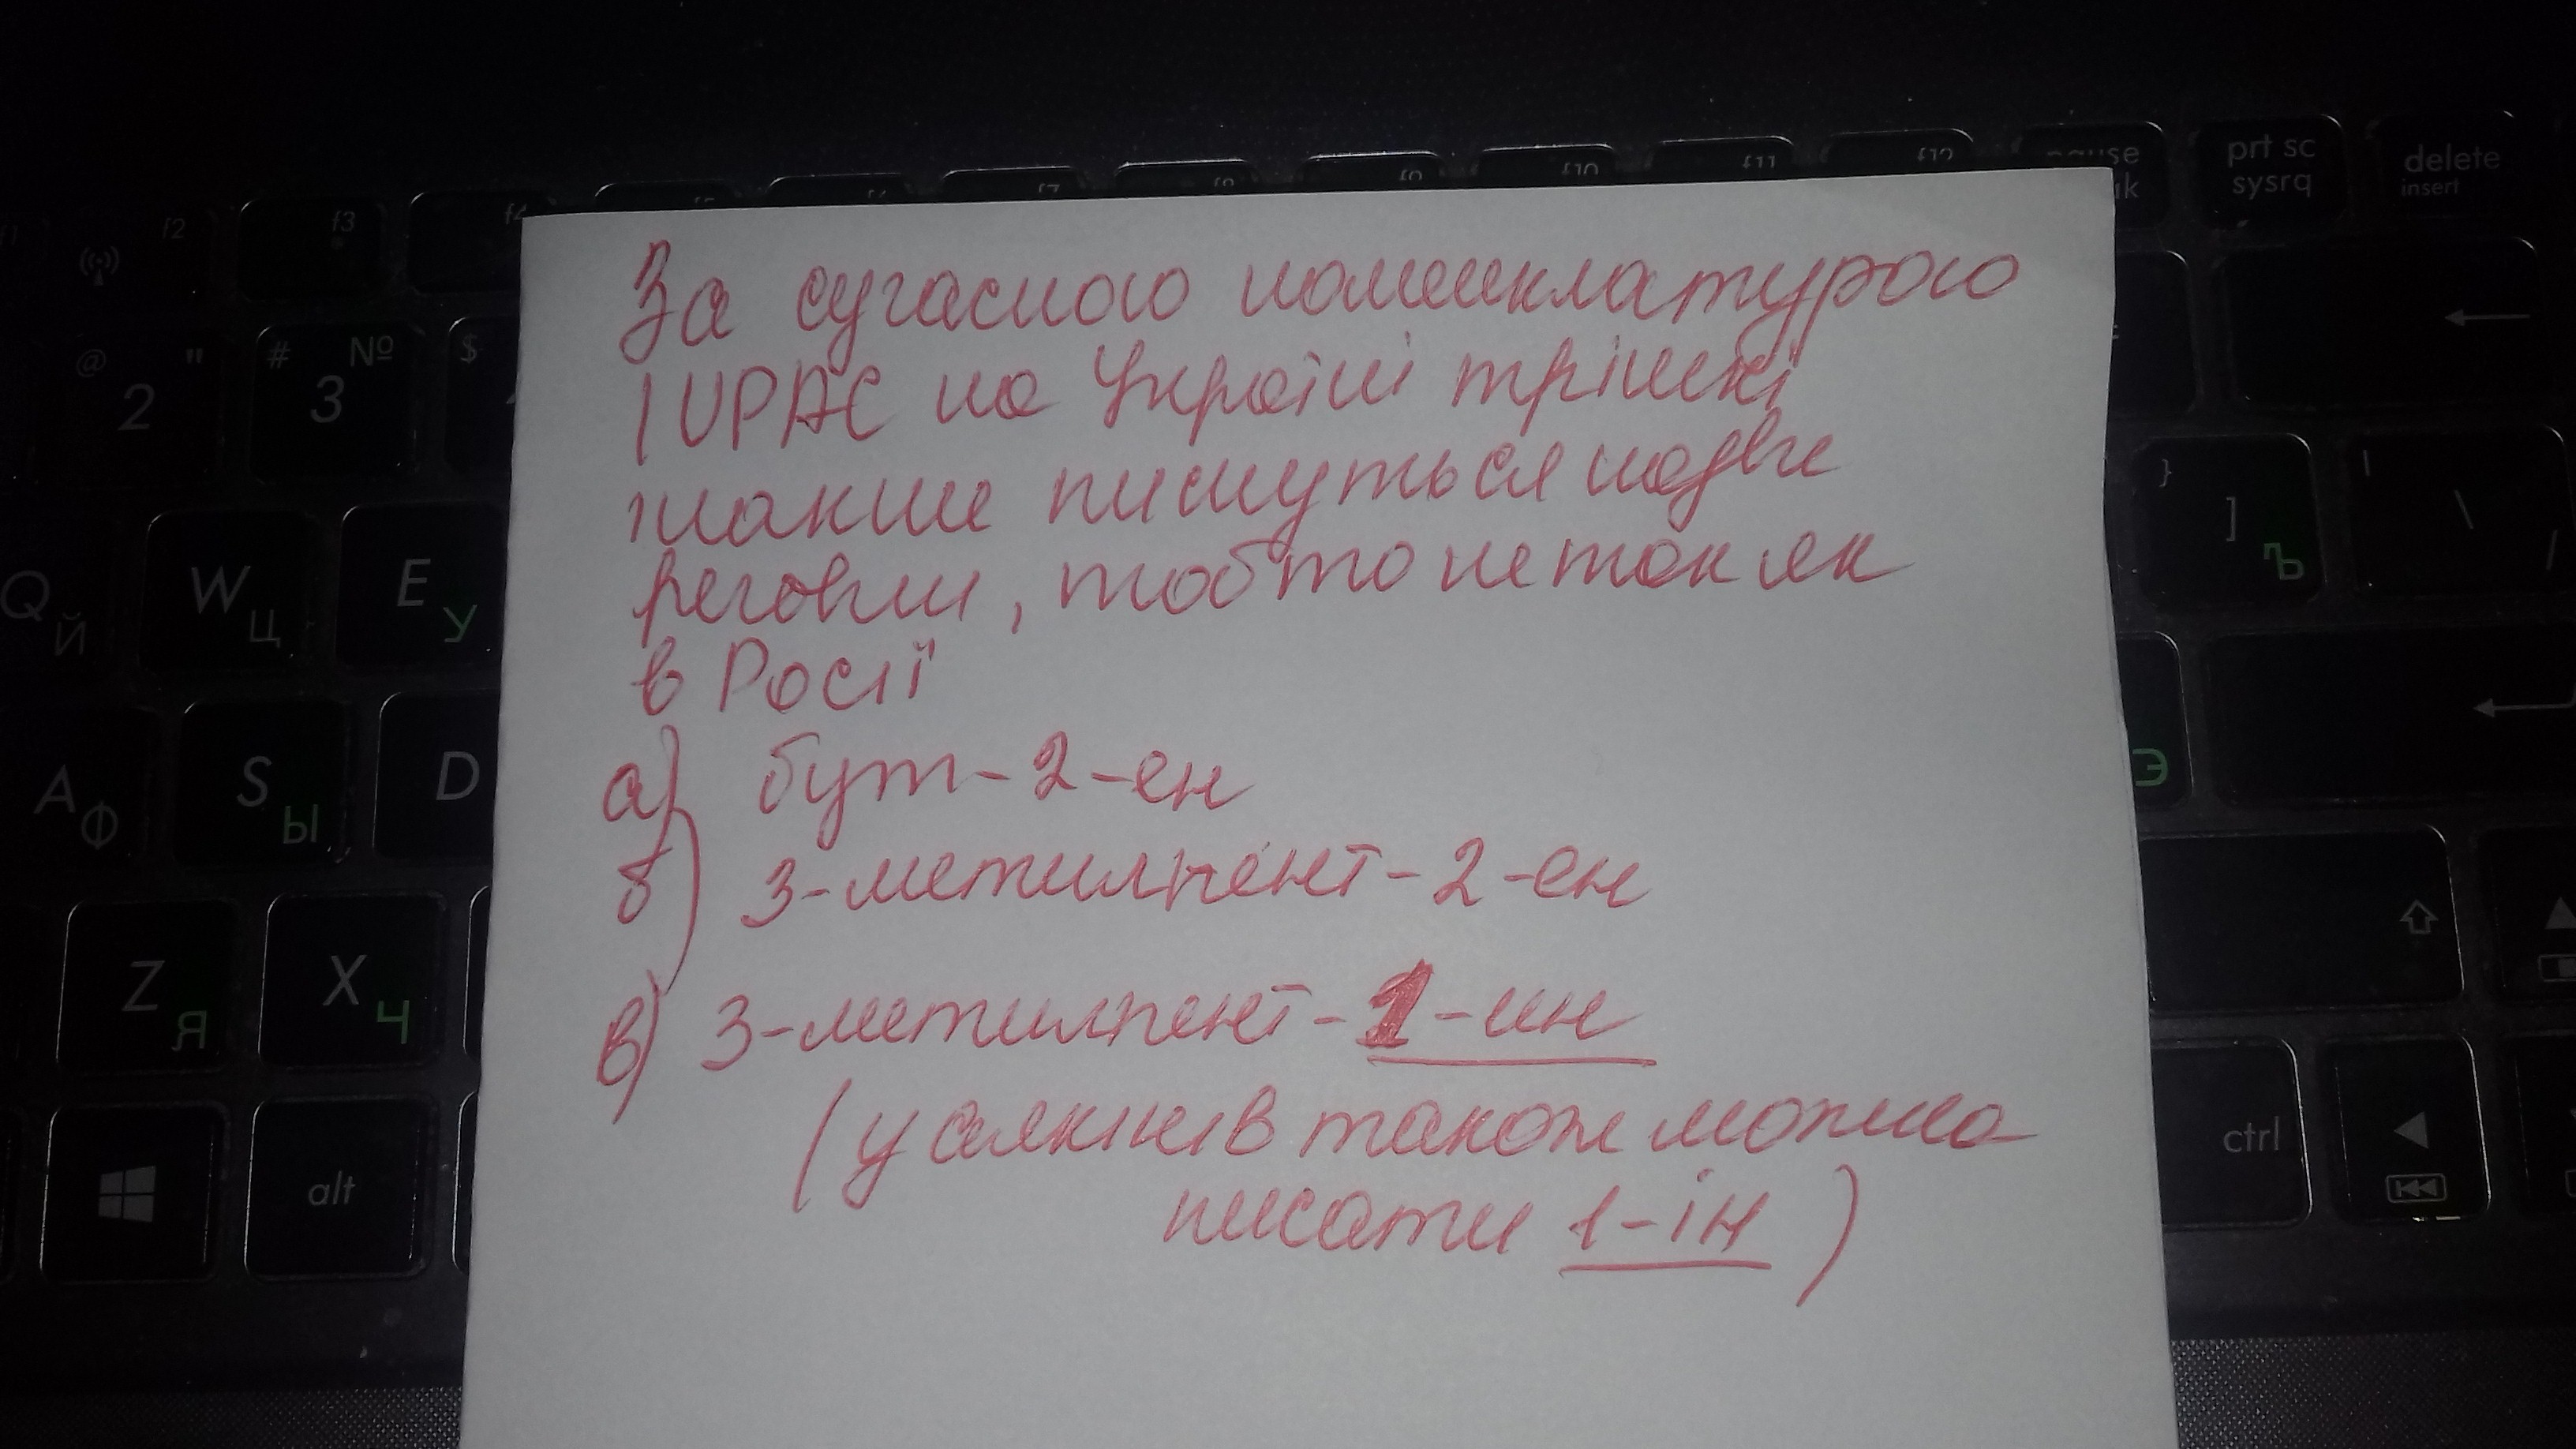 За сучасною номенклатурою
IUPAC на Україні трішкі
інакше пишуться назви
речовин, тобто не так як
в Росії
а) бут-2-ен
б) 3-метилпент-2-ен
в) 3-метилпент-1-ин
(у алкінів також можна
писати 1-ін)
f2 f3 f10 f11 f12 pause prt sc sysrq delete insert
@ 2 " # 3 № $
Q Й W Ц E У } ] Ъ | \ /
A Ф S Ы D Э
Z Я X Ч
alt ctrl